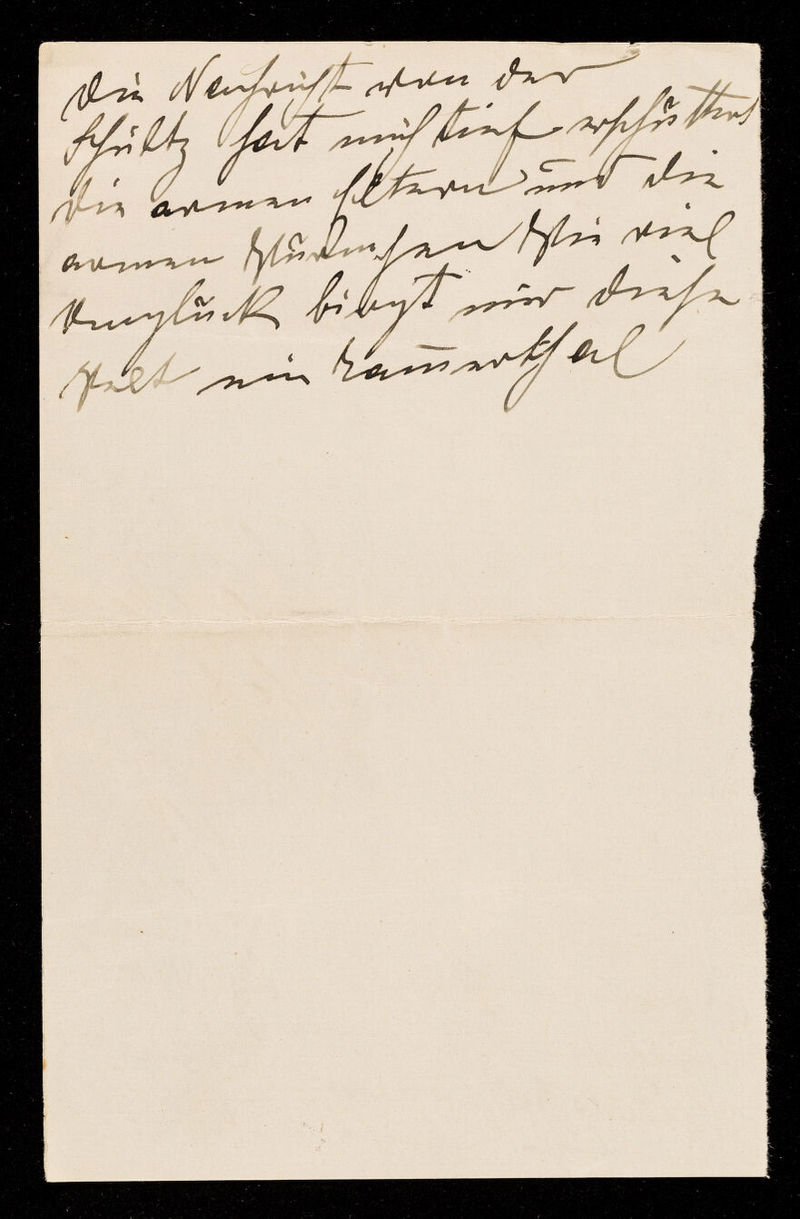 Die Nachricht von der
Schultz hat mich tief erschüttert
die armen Eltern und die
armen Würmchen Wie viel
Unglück birgt nur diese
Welt ein Jam̅erthal